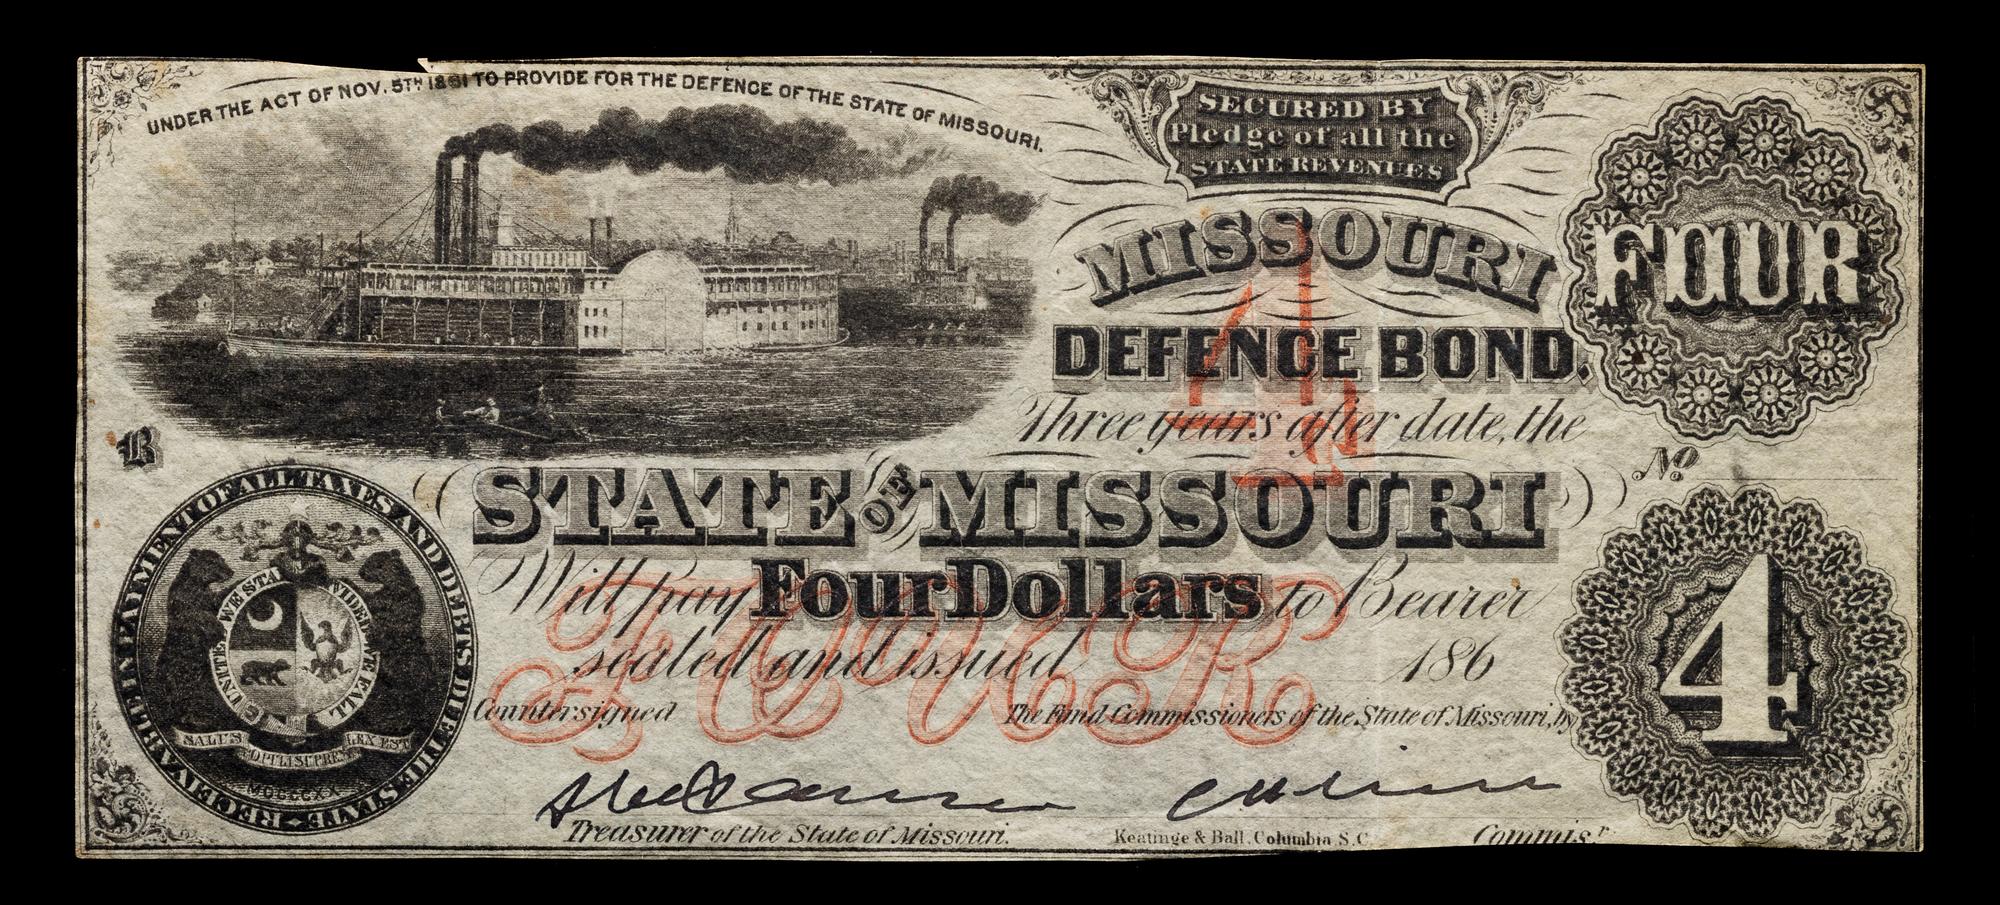 UNDER THE ACT OF NOV. 5TH 1861 TO PROVIDE FOR THE DEFENCE OF THE STATE OF MISSOURI.
SECURED BY
Pledge of all the
STATE REVENUES
MISSOURI
DEFENCE BOND.
4
FOUR
Three years after date, the
B
No
STATE OF MISSOURI
Will pay Four Dollars to Bearer
FOUR
sealed and issued 186
4
Countersigned
The Fund Commissioners of the State of Missouri, by
RECEIVABLE IN PAYMENT OF ALL TAXES AND DEBTS DUE THE STATE
UNITED WE STAND DIVIDED WE FALL
SALUS POPULI SUPREMA LEX EST
MDCCCXX
Treasurer of the State of Missouri.
Keatinge & Ball, Columbia S.C.
Commisr.